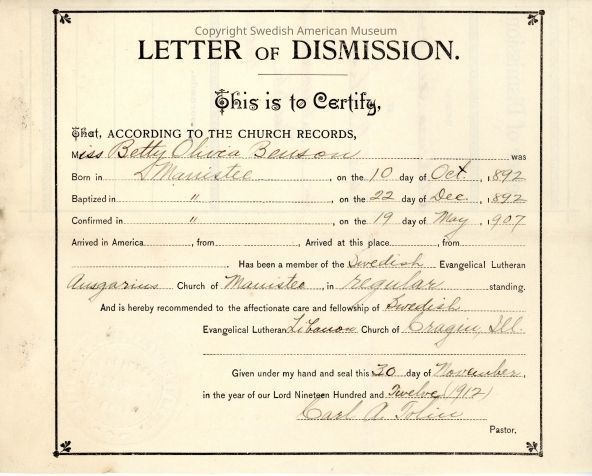 Copyright Swedish American Museum
LETTER OF DISMISSION.
This is to Certify,
That, ACCORDING TO THE CHURCH RECORDS,
Miss Betty Olivia Benson was
Born in Manistee, on the 10 day of Oct., 1892
Baptized in " , on the 22 day of Dec., 1892
Confirmed in " , on the 19 day of May, 1907
Arrived in America, from Arrived at this place, from
Has been a member of the Swedish Evangelical Lutheran
Ansgarius Church of Manistee, in regular standing.
And is hereby recommended to the affectionate care and fellowship of Swedish
Evangelical Lutheran Libanon Church of Cragin, Ill.
Given under my hand and seal this 30 day of November,
in the year of our Lord Nineteen Hundred and Twelve (1912)
Carl A. Tolin
Pastor.